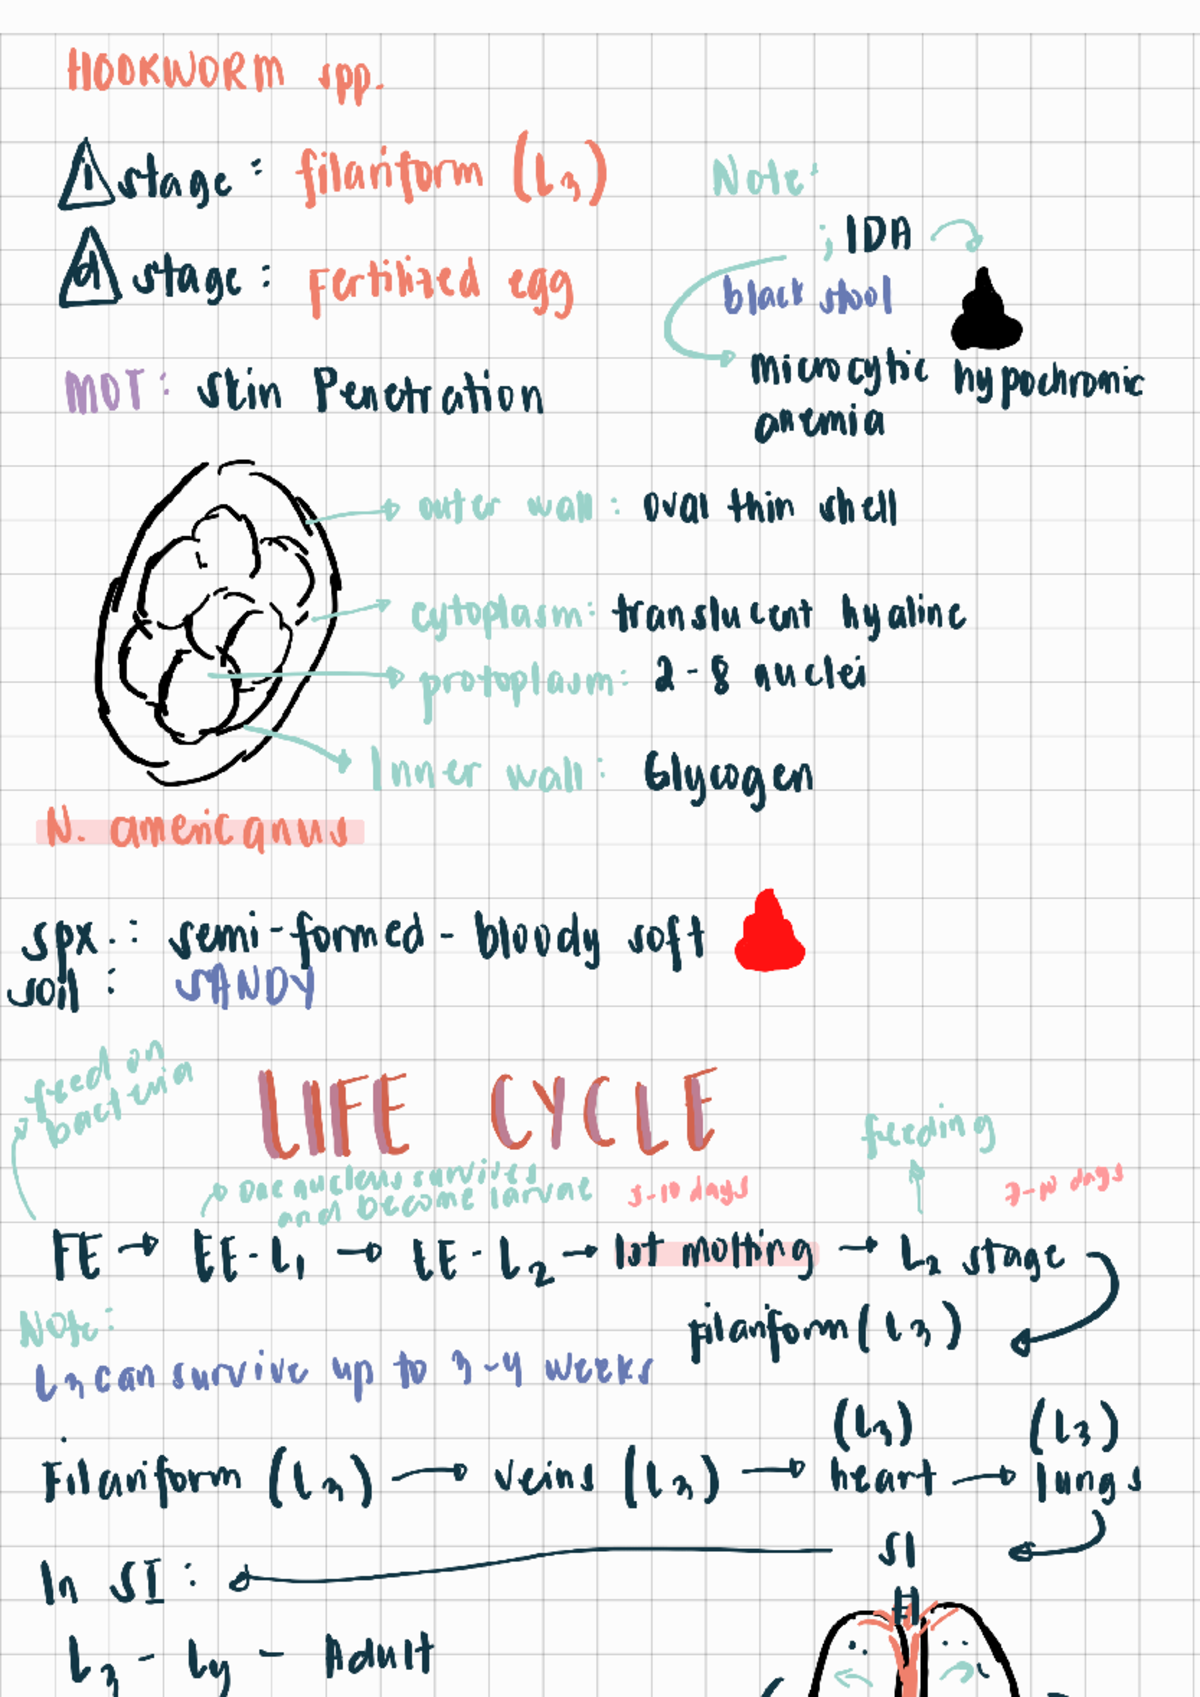 HOOKWORM spp.
i stage: filariform (L3)
d stage: Fertilized egg
Note:
; IDA
black stool
microcytic hypochromic
anemia
MOT: skin Penetration
outer wall: oval thin shell
cytoplasm: translucent hyaline
protoplasm: 2-8 nuclei
Inner wall: Glycogen
N. americanus
spx.: semi-formed - bloody soft
soil: SANDY
feed on
bacteria
LIFE CYCLE
feeding
One nucleus survives
and become larvae
5-10 days
7-10 days
FE → EE-L1 → EE-L2 → 1st molting → L2 stage
Filariform (L3)
Note:
L3 can survive up to 3-4 weeks
(L3) (L3)
Filariform (L3) → veins (L3) → heart → lungs
SI
In SI:
L3 - L4 - Adult